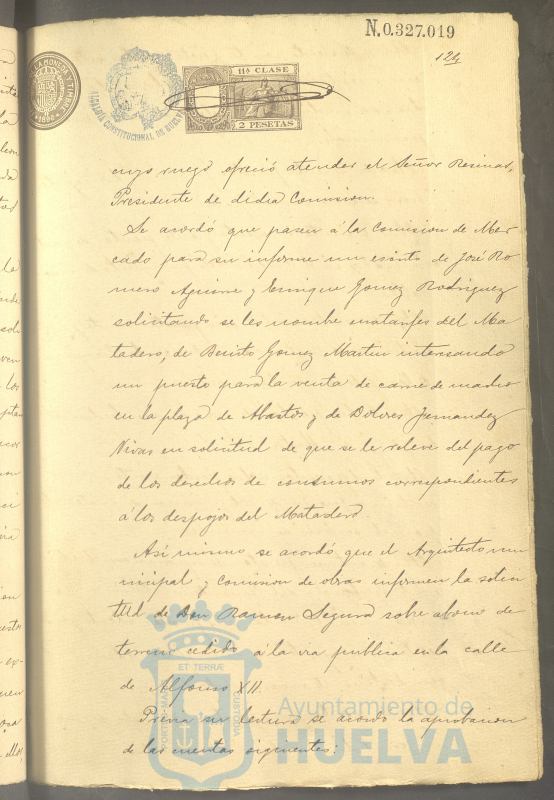 N.0.327.019
124
LA MONEDA Y TIMBRE
1898
ALCALDIA CONSTITUCIONAL DE HUELVA
11ª CLASE
2 PESETAS
cuyo ruego ofreció atender el Señor Resinas,
Presidente de dicha Comision.
Se acordó que pasen á la Comision de Mer
cado para su informe un escrito de José Ro
mero Aguirre y Enrique Gomez Rodriguez
solicitando se les nombre matarifes del Ma
tadero; de Benito Gomez Martin interesando
un puesto para la venta de carne de macho
en la plaza de Abastos y de Dolores Fernandez
Vivas en solicitud de que se le releve del pago
de los derechos de consumos correspondientes
á los despojos del Matadero.
Asi mismo se acordó que el Arquitecto mu
nicipal y comision de obras informen la solici
tud de Don Ramon Segura sobre abono de
terreno cedido á la via publica en la calle
de Alfonso XII.
Previa su lectura se acordo la aprobacion
de las cuentas siguientes:
ET TERRÆ
PORTUS MARIS
CUSTODIA
Ayuntamiento de
HUELVA